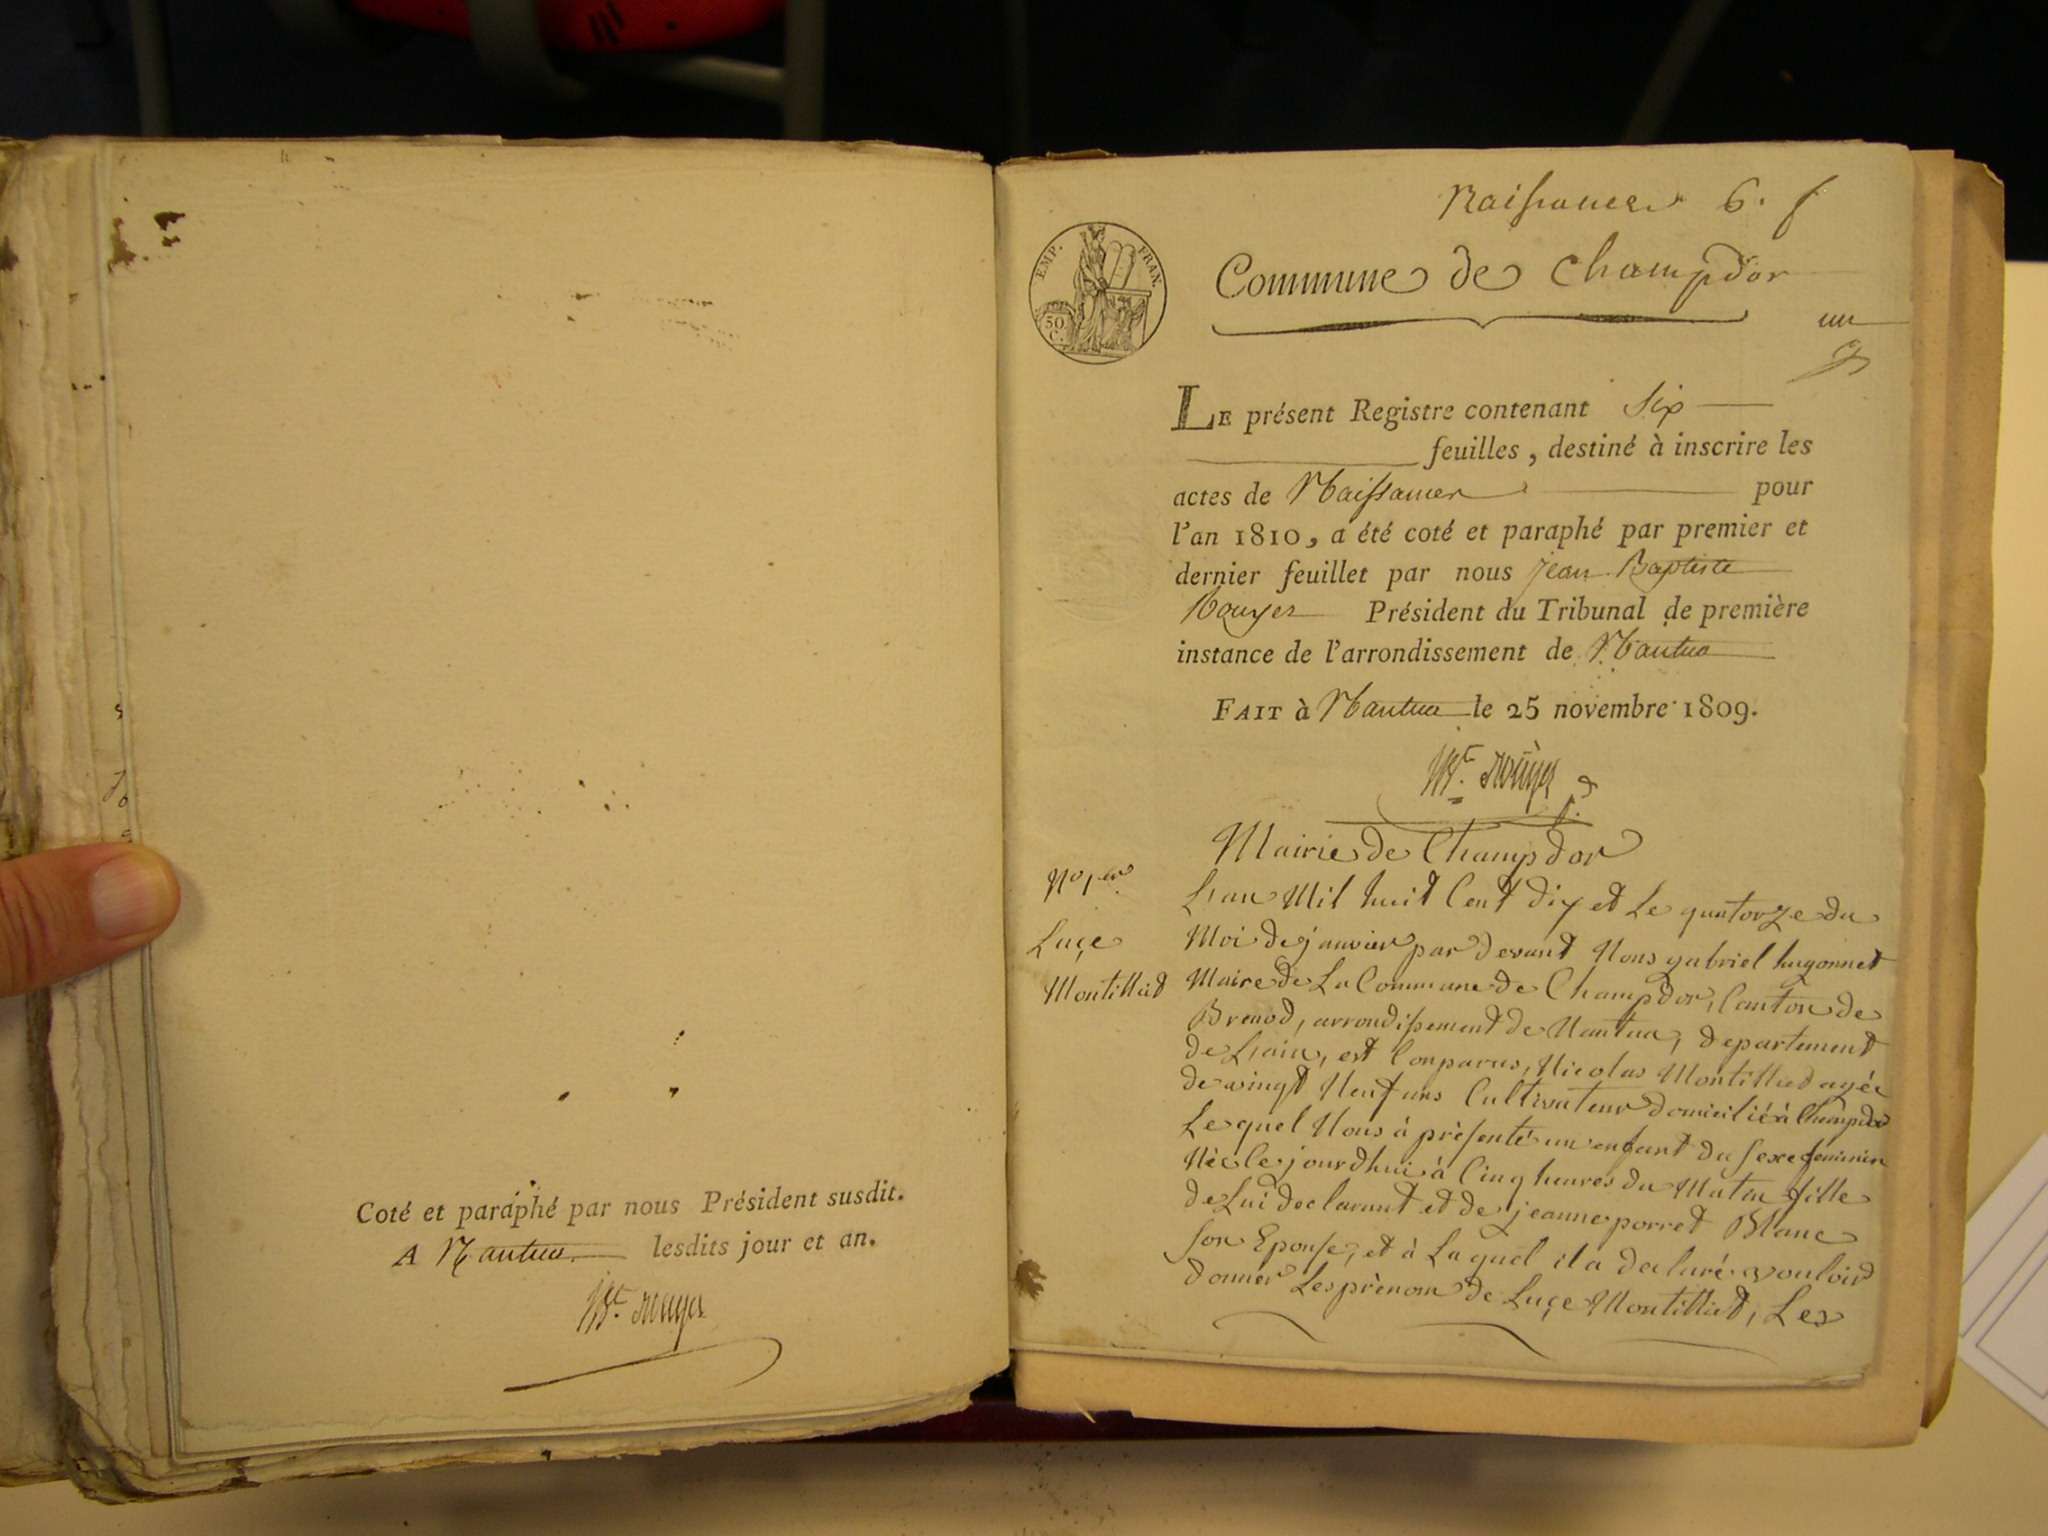 Coté et paraphé par nous Président susdit.
A Nantua lesdits jour et an.
Bte. Rouyer
Naissances 6. f
EMP. FRAN.
50 C.
Commune de Champdor
un
LE présent Registre contenant Six
feuilles, destiné à inscrire les
actes de Naissances pour
l'an 1810, a été coté et paraphé par premier et
dernier feuillet par nous Jean Baptiste
Rouyer Président du Tribunal de première
instance de l'arrondissement de Nantua
FAIT à Nantua le 25 novembre 1809.
Bte. Rouyer
Mairie de Champdor
No 1er
Luçe
Montilliet
L'an Mil huit Cent dix et Le quatorze du
Moi de janvier par devant Nous gabriel hugonnet
Maire de La Commune de Champdor, Canton de
Brenod, arrondissement de Nantua, departement
de L'ain, est Conparus, Nicolas Montilliet agée
de vingt Neuf ans Cultivateur domicilié à Champdor
Le quel Nous à présenté un enfant du Sexe feminin
Née Ce jourdhui à Cinq heures du Matin fille
de Lui declarant et de jeanne porret Blanc
Son Epouse, et à La quel il a declaré vouloir
donner Les prénom de Luçe Montilliet, Les